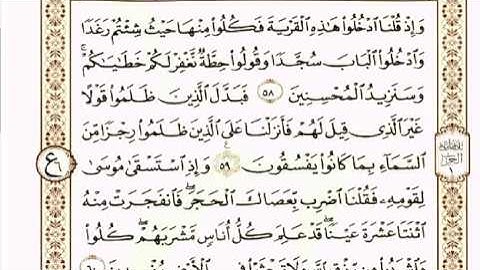 وَإِذْ قُلْنَا ٱدْخُلُوا۟ هَـٰذِهِ ٱلْقَرْيَةَ فَكُلُوا۟ مِنْهَا حَيْثُ شِئْتُمْ رَغَدًا
وَٱدْخُلُوا۟ ٱلْبَابَ سُجَّدًا وَقُولُوا۟ حِطَّةٌ نَّغْفِرْ لَكُمْ خَطَـٰيَـٰكُمْ ۚ
وَسَنَزِيدُ ٱلْمُحْسِنِينَ ٥٨ فَبَدَّلَ ٱلَّذِينَ ظَلَمُوا۟ قَوْلًا
غَيْرَ ٱلَّذِى قِيلَ لَهُمْ فَأَنزَلْنَا عَلَى ٱلَّذِينَ ظَلَمُوا۟ رِجْزًا مِّنَ
ٱلسَّمَآءِ بِمَا كَانُوا۟ يَفْسُقُونَ ٥٩ وَإِذِ ٱسْتَسْقَىٰ مُوسَىٰ
لِقَوْمِهِۦ فَقُلْنَا ٱضْرِب بِّعَصَاكَ ٱلْحَجَرَ ۖ فَٱنفَجَرَتْ مِنْهُ
ٱثْنَتَا عَشْرَةَ عَيْنًا ۖ قَدْ عَلِمَ كُلُّ أُنَاسٍ مَّشْرَبَهُمْ ۖ كُلُوا۟